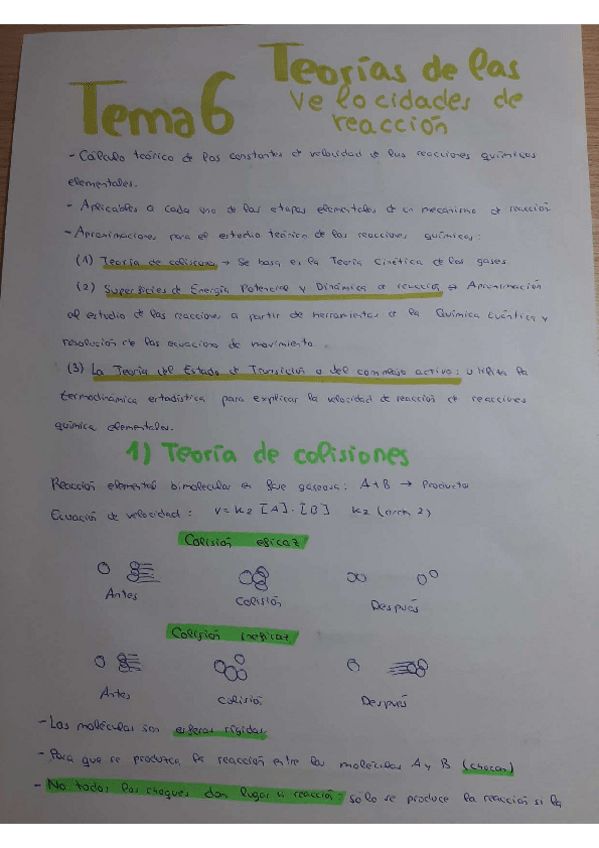 Tema 6
Teorías de las
velocidades de
reacción
- Cálculo teórico de las constantes de velocidad de las reacciones químicas
elementales.
- Aplicables a cada uno de las etapas elementales de un mecanismo de reacción
- Aproximaciones para el estudio teórico de las reacciones químicas:
(1) Teoría de colisiones → Se basa en la Teoría Cinética de los gases.
(2) Superficies de Energía Potencial y Dinámica de reacción → Aproximación
al estudio de las reacciones a partir de herramientas de la Química Cuántica y
resolución de las ecuaciones de movimiento.
(3) La Teoría del Estado de Transición o del complejo activo: utiliza la
termodinámica estadística para explicar la velocidad de reacción de reacciones
química elementales.
1) Teoría de colisiones
Reacción elemental bimolecular en fase gaseosa: A+B → Productos
Ecuación de velocidad: v = k2 [A]·[B] k2 (orden 2)
Colisión eficaz
Antes Colisión Después
Colisión ineficaz
Antes Colisión Después
- Las moléculas son esferas rígidas
- Para que se produzca la reacción entre las moléculas A y B (chocan)
- No todos los choques dan lugar a reacción: sólo se produce la reacción si la